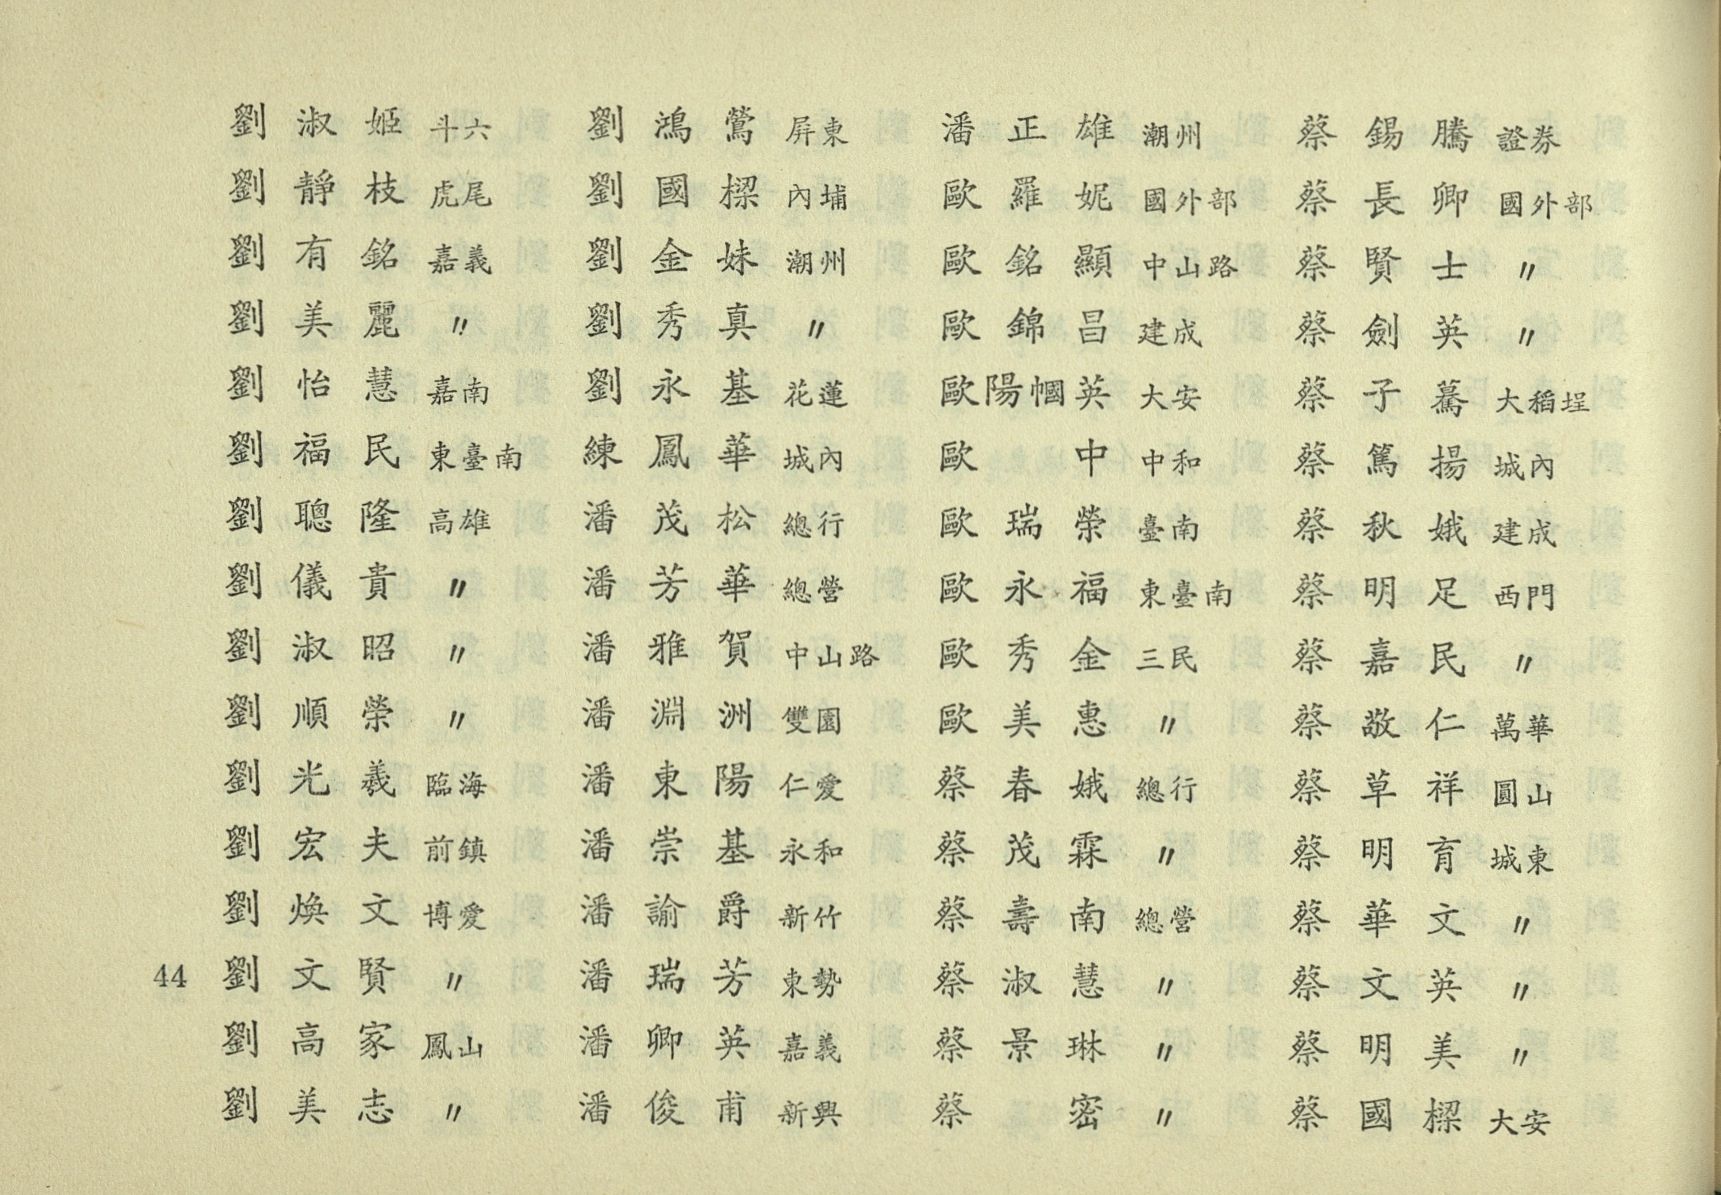 劉淑姬 斗六
劉靜枝 虎尾
劉有銘 嘉義
劉美麗 〃
劉怡慧 嘉南
劉福民 東臺南
劉聰隆 高雄
劉儀貴 〃
劉淑昭 〃
劉順榮 〃
劉光羲 臨海
劉宏夫 前鎮
劉煥文 博愛
劉文賢 〃
劉高家 鳳山
劉美志 〃
劉鴻鶯 屏東
劉國樑 內埔
劉金妹 潮州
劉秀真 〃
劉永基 花蓮
練鳳華 城內
潘茂松 總行
潘芳華 總營
潘雅賀 中山路
潘淵洲 雙園
潘東陽 仁愛
潘崇基 永和
潘諭爵 新竹
潘瑞芳 東勢
潘卿英 嘉義
潘俊甫 新興
潘正雄 潮州
歐羅妮 國外部
歐銘顯 中山路
歐錦昌 建成
歐陽幗英 大安
歐中 中和
歐瑞榮 臺南
歐永福 東臺南
歐秀金 三民
歐美惠 〃
蔡春娥 總行
蔡茂霖 〃
蔡壽南 總營
蔡淑慧 〃
蔡景琳 〃
蔡密 〃
蔡錫騰 證券
蔡長卿 國外部
蔡賢士 〃
蔡劍英 〃
蔡子驀 大稻埕
蔡篤揚 城內
蔡秋娥 建成
蔡明足 西門
蔡嘉民 〃
蔡敬仁 萬華
蔡草祥 圓山
蔡明育 城東
蔡華文 〃
蔡文英 〃
蔡明美 〃
蔡國樑 大安
44